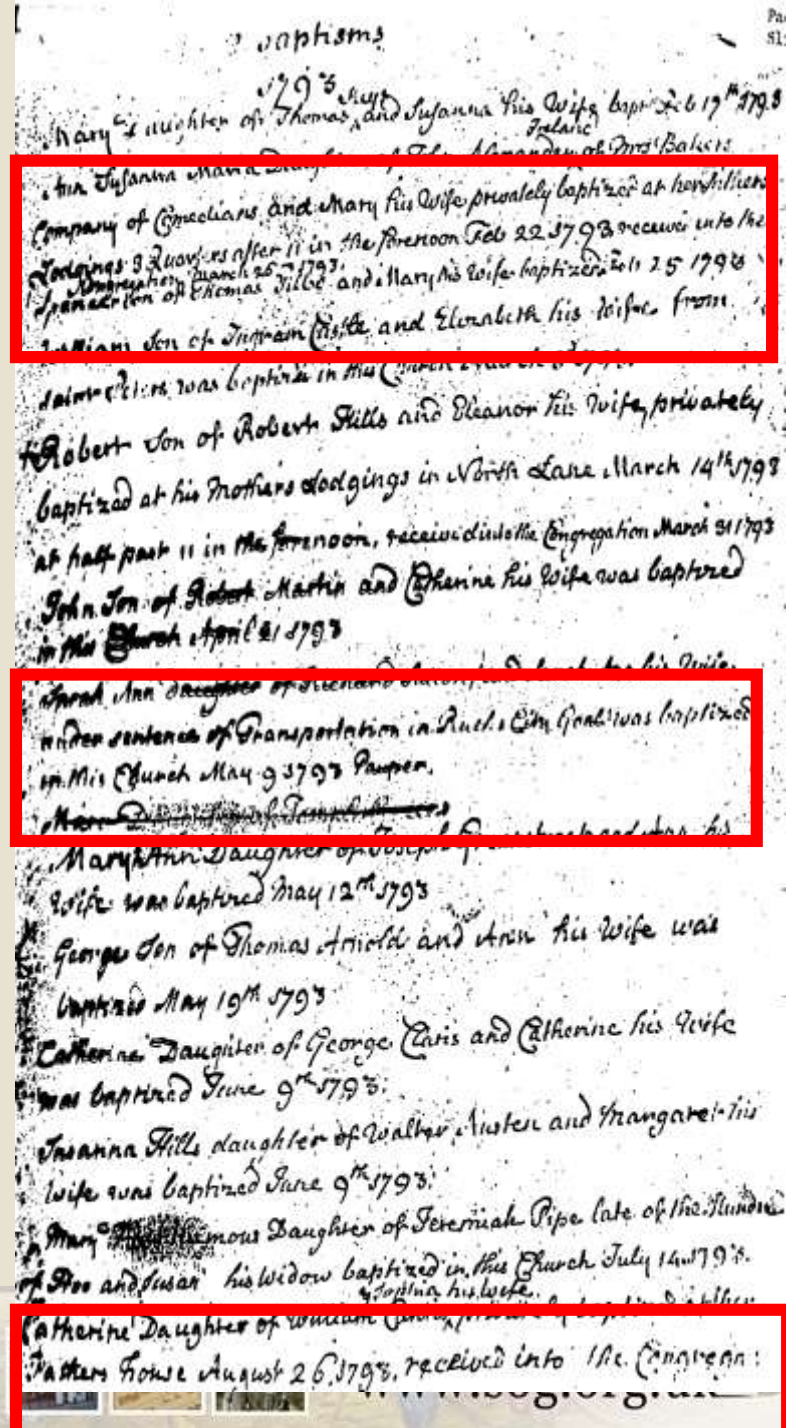 Pa
Sl
Baptisms
1793
Mary Daughter of Thomas and Susanna his Wife bapt Feb 17th 1793
Ireland
Ann Susanna Maria Daughter of John Alexander of Mrs Bakers
Company of Comedians and Mary his Wife privately baptized at her
Lodgings 3 Quarters after 11 in the forenoon Feb 22 1793 received into the
Congregation March 25 1793.
Son of Thomas and Mary his Wife baptized 25 1793
William Son of Ingram Castle and Elizabeth his Wife from
Saint Peters was baptized in this Church March
Robert Son of Robert Hills and Eleanor his Wife, privately
baptized at his Mothers Lodgings in North Lane March 14th 1793
at half past 11 in the forenoon, received into the Congregation March 31 1793
John Son of Robert Martin and Catherine his Wife was baptized
in this Church April 21 1793
Sarah Ann daughter of Richard and his Wife
under sentence of Transportation in City Goal was baptized
in this Church May 9 1793 Pauper.
Mary Ann Daughter of Joseph and Ann his
Wife was baptized May 12th 1793
George Son of Thomas Arnold and Ann his Wife was
baptized May 19th 1793
Catherine Daughter of George Claris and Catherine his Wife
was baptized June 9th 1793.
Susanna Hills daughter of Walter Austen and Margaret his
Wife was baptized June 9th 1793.
Mary Daughter of Jeremiah Pipe late of the
of Hoo and Susan his Widow baptized in this Church July 14 1793.
& Sophia his Wife.
Catherine Daughter of William privately baptized at her
Fathers house August 26 1793, received into the Congregn:
www.sog.org.uk